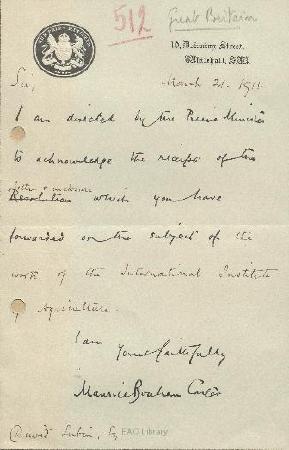 512
Great Britain
10, Downing Street,
Whitehall, S.W.
March 21. 1911
Sir,
I am directed by the Prime Minister
to acknowledge the receipt of the
letter & enclosure
Resolution which you have
forwarded on the subject of the
work of the International Institute
of Agriculture.
I am
Yours faithfully
Maurice Bonham Carter
David Lubin, Esq
FAO Library